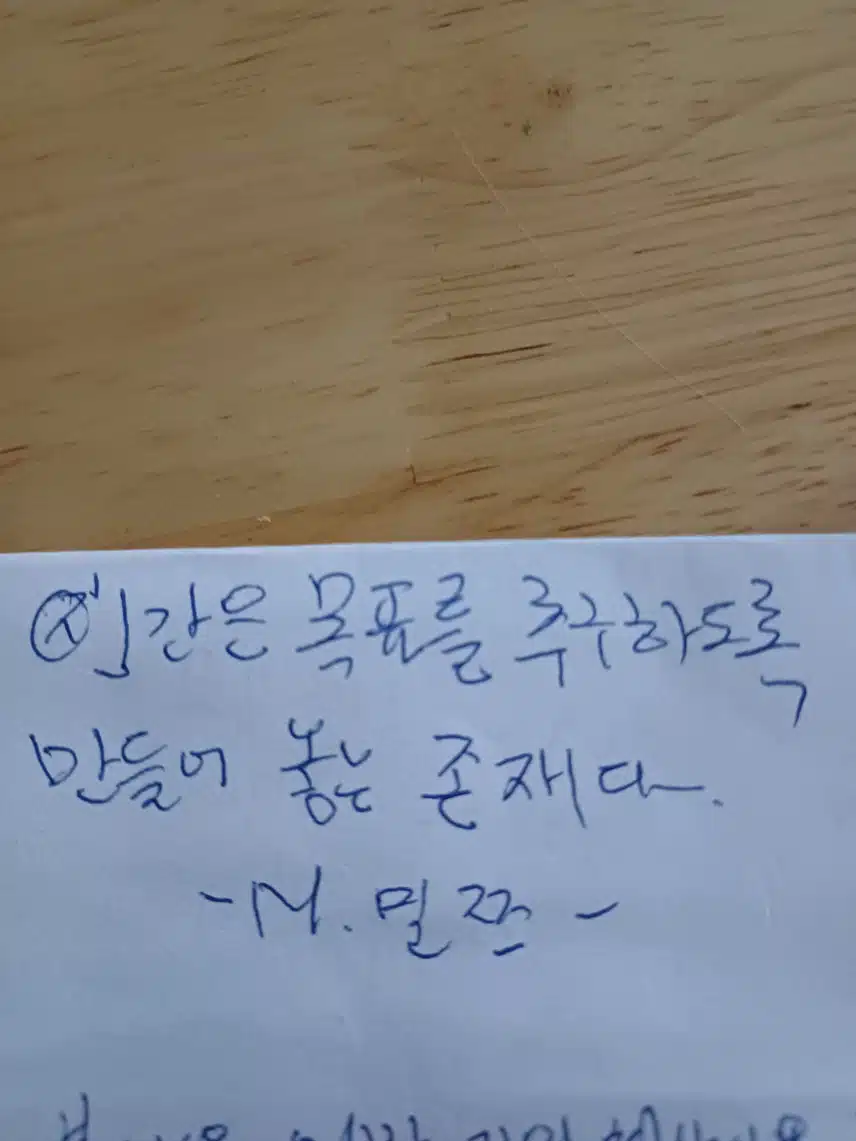 인간은 목표를 추구하도록
만들어 놓는 존재다.
-M. 밀쯔-